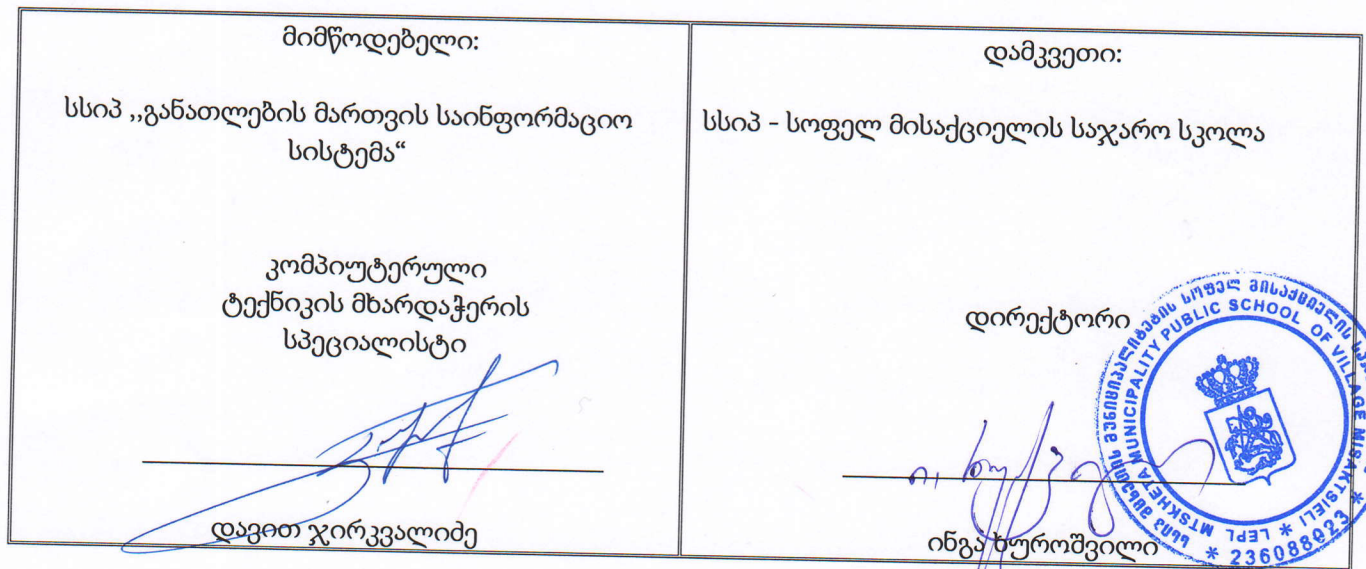 მიმწოდებელი:
სსიპ ,,განათლების მართვის საინფორმაციო
სისტემა“
კომპიუტერული
ტექნიკის მხარდაჭერის
სპეციალისტი
დავით ჯირკვალიძე
დამკვეთი:
სსიპ - სოფელ მისაქციელის საჯარო სკოლა
დირექტორი
ინგა ხუროშვილი
სსიპ მცხეთის მუნიციპალიტეტის სოფელ მისაქციელის
LEPL MTSKHETA MUNICIPALITY PUBLIC SCHOOL OF VILLAGE MISAKTSIELI
* 236088023 *